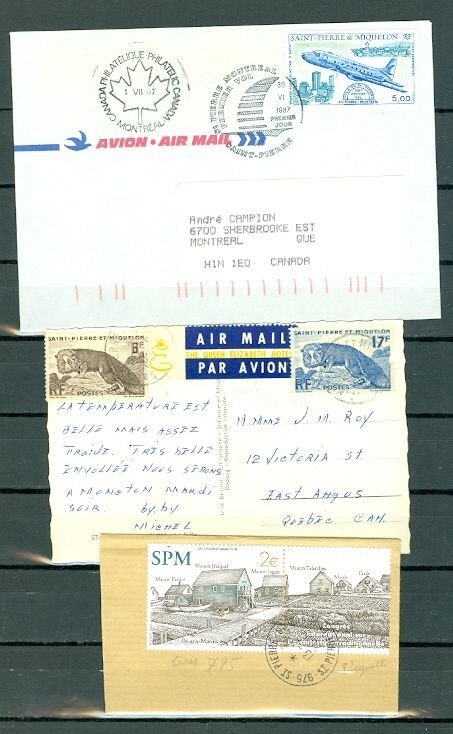 SAINT-PIERRE & MIQUELON RF
5,00
CANADA PHILATELIQUE PHILATELIC CANADA
1 VII 87
MONTRÉAL
ST PIERRE MONTREAL
PREMIER VOL
30
VI
1987
PREMIER
JOUR
SAINT-PIERRE
AVION • AIR MAIL
André CAMPION
6700 SHERBROOKE EST
MONTREAL QUE
H1N 1E0 CANADA
SAINT-PIERRE ET MIQUELON
RF POSTES
AIR MAIL
THE QUEEN ELIZABETH HOTEL
PAR AVION
SAINT-PIERRE ET MIQUELON
17F
RF POSTES
LA TEMPÉRATURE EST
BELLE MAIS ASSEZ
FROIDE. TRÈS BELLE
ENVOLLÉE NOUS SERONS
A MONCTON MARDI
SOIR. by. by
MICHEL
M. MME J. M. ROY
12 VICTORIA ST
EAST ANGUS
QUÉBEC CAN.
SPM
2€
Maison Jézéquel
Ile-aux-Marins
Congrès
International sur
975 - ST PIERRE
795